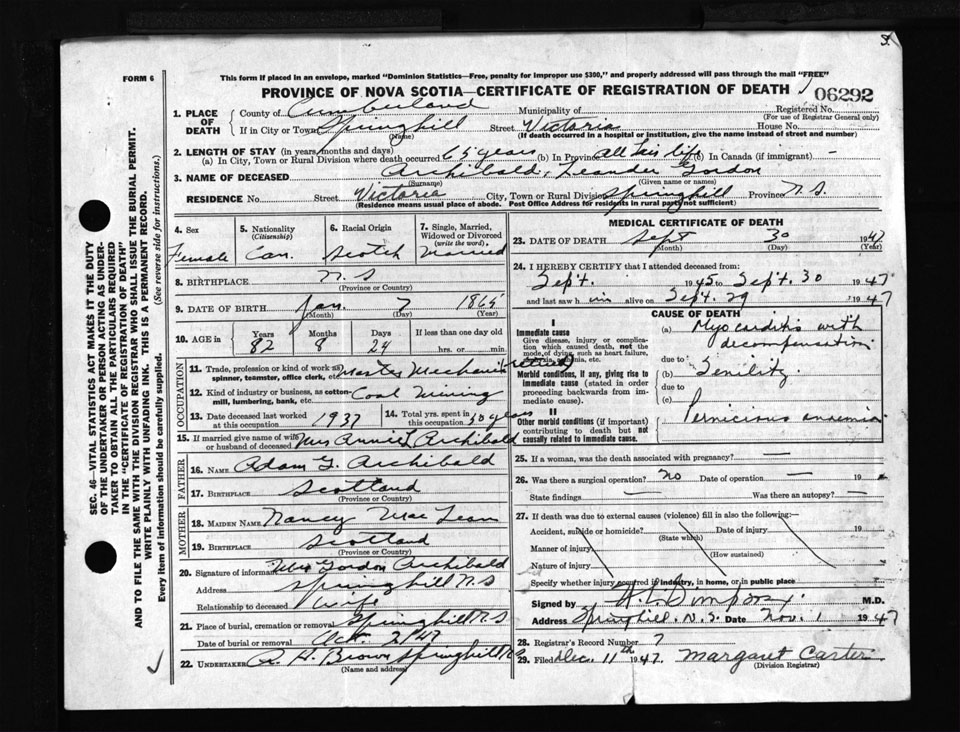 FORM 6
This form if placed in an envelope, marked "Dominion Statistics—Free, penalty for improper use $300," and properly addressed will pass through the mail "FREE"
PROVINCE OF NOVA SCOTIA—CERTIFICATE OF REGISTRATION OF DEATH
06292
1. PLACE OF DEATH County of Cumberland Municipality of Registered No. (For use of Registrar General only)
If in City or Town Springhill (Name) Street Victoria House No.
(If death occurred in a hospital or institution, give the name instead of street and number)
2. LENGTH OF STAY (in years, months and days)
(a) In City, Town or Rural Division where death occurred 65 years (b) In Province all his life (c) In Canada (if immigrant) —
3. NAME OF DECEASED Archibald, Leander Gordon
(Surname) (Given name or names)
RESIDENCE No. Street Victoria City, Town or Rural Division Springhill Province N.S.
(Residence means usual place of abode. Post Office Address for residents in rural parts not sufficient)
4. Sex Female
5. Nationality (Citizenship) Can.
6. Racial Origin Scotch
7. Single, Married, Widowed or Divorced (write the word) Married
8. BIRTHPLACE N.S
(Province or Country)
9. DATE OF BIRTH Jan. 7 1865
(Month) (Day) (Year)
10. AGE in Years 82 Months 8 Days 24 If less than one day old hrs. or min.
OCCUPATION
11. Trade, profession or kind of work as spinner, teamster, office clerk, etc. Master Mechanic (retired)
12. Kind of industry or business, as cotton mill, lumbering, bank, etc. Coal Mining
13. Date deceased last worked at this occupation 1937
14. Total yrs. spent in this occupation 50 years
15. If married give name of wife or husband of deceased Mrs Annie L Archibald
FATHER
16. NAME Adam G. Archibald
17. BIRTHPLACE Scotland
(Province or Country)
MOTHER
18. MAIDEN NAME Nancy MacLean
19. BIRTHPLACE Scotland
(Province or Country)
20. Signature of informant Mrs Gordon Archibald
Address Springhill N.S
Relationship to deceased Wife
21. Place of burial, cremation or removal Springhill N.S
Date of burial or removal Oct. 2 1947
22. UNDERTAKER A. H. Brown Springhill N.S
(Name and address)
MEDICAL CERTIFICATE OF DEATH
23. DATE OF DEATH Sept 30 1947
(Month) (Day) (Year)
24. I HEREBY CERTIFY that I attended deceased from:
Sept. 1945 to Sept. 30 1947
and last saw him alive on Sept. 29 1947
CAUSE OF DEATH
I
Immediate cause
Give disease, injury or complication which caused death, not the mode of dying, such as heart failure, asphyxia, asthenia, etc.
(a) Myocarditis with decompensation
due to
Morbid conditions, if any, giving rise to immediate cause (stated in order proceeding backwards from immediate cause).
(b) Senility
due to
(c)
II
Other morbid conditions (if important) contributing to death but not causally related to immediate cause.
Pernicious anemia
25. If a woman, was the death associated with pregnancy? —
26. Was there a surgical operation? No Date of operation — 19
State findings — Was there an autopsy? —
27. If death was due to external causes (violence) fill in also the following:—
Accident, suicide or homicide? (State which) Date of injury 19
Manner of injury (How sustained)
Nature of injury
Specify whether injury occurred in industry, in home, or in public place
Signed by M.D.
Address Springhill. N.S. Date Nov. 1 1947
28. Registrar's Record Number 7
29. Filed Dec. 11th 1947. Margaret Carter
(Division Registrar)
SEC. 46—VITAL STATISTICS ACT MAKES IT THE DUTY
OF THE UNDERTAKER OR PERSON ACTING AS UNDER-
TAKER TO OBTAIN ALL THE PARTICULARS REQUIRED
IN THE "CERTIFICATE OF REGISTRATION OF DEATH"
AND TO FILE THE SAME WITH THE DIVISION REGISTRAR WHO SHALL ISSUE THE BURIAL PERMIT.
WRITE PLAINLY WITH UNFADING INK. THIS IS A PERMANENT RECORD.
Every item of information should be carefully supplied. (See reverse side for instructions.)